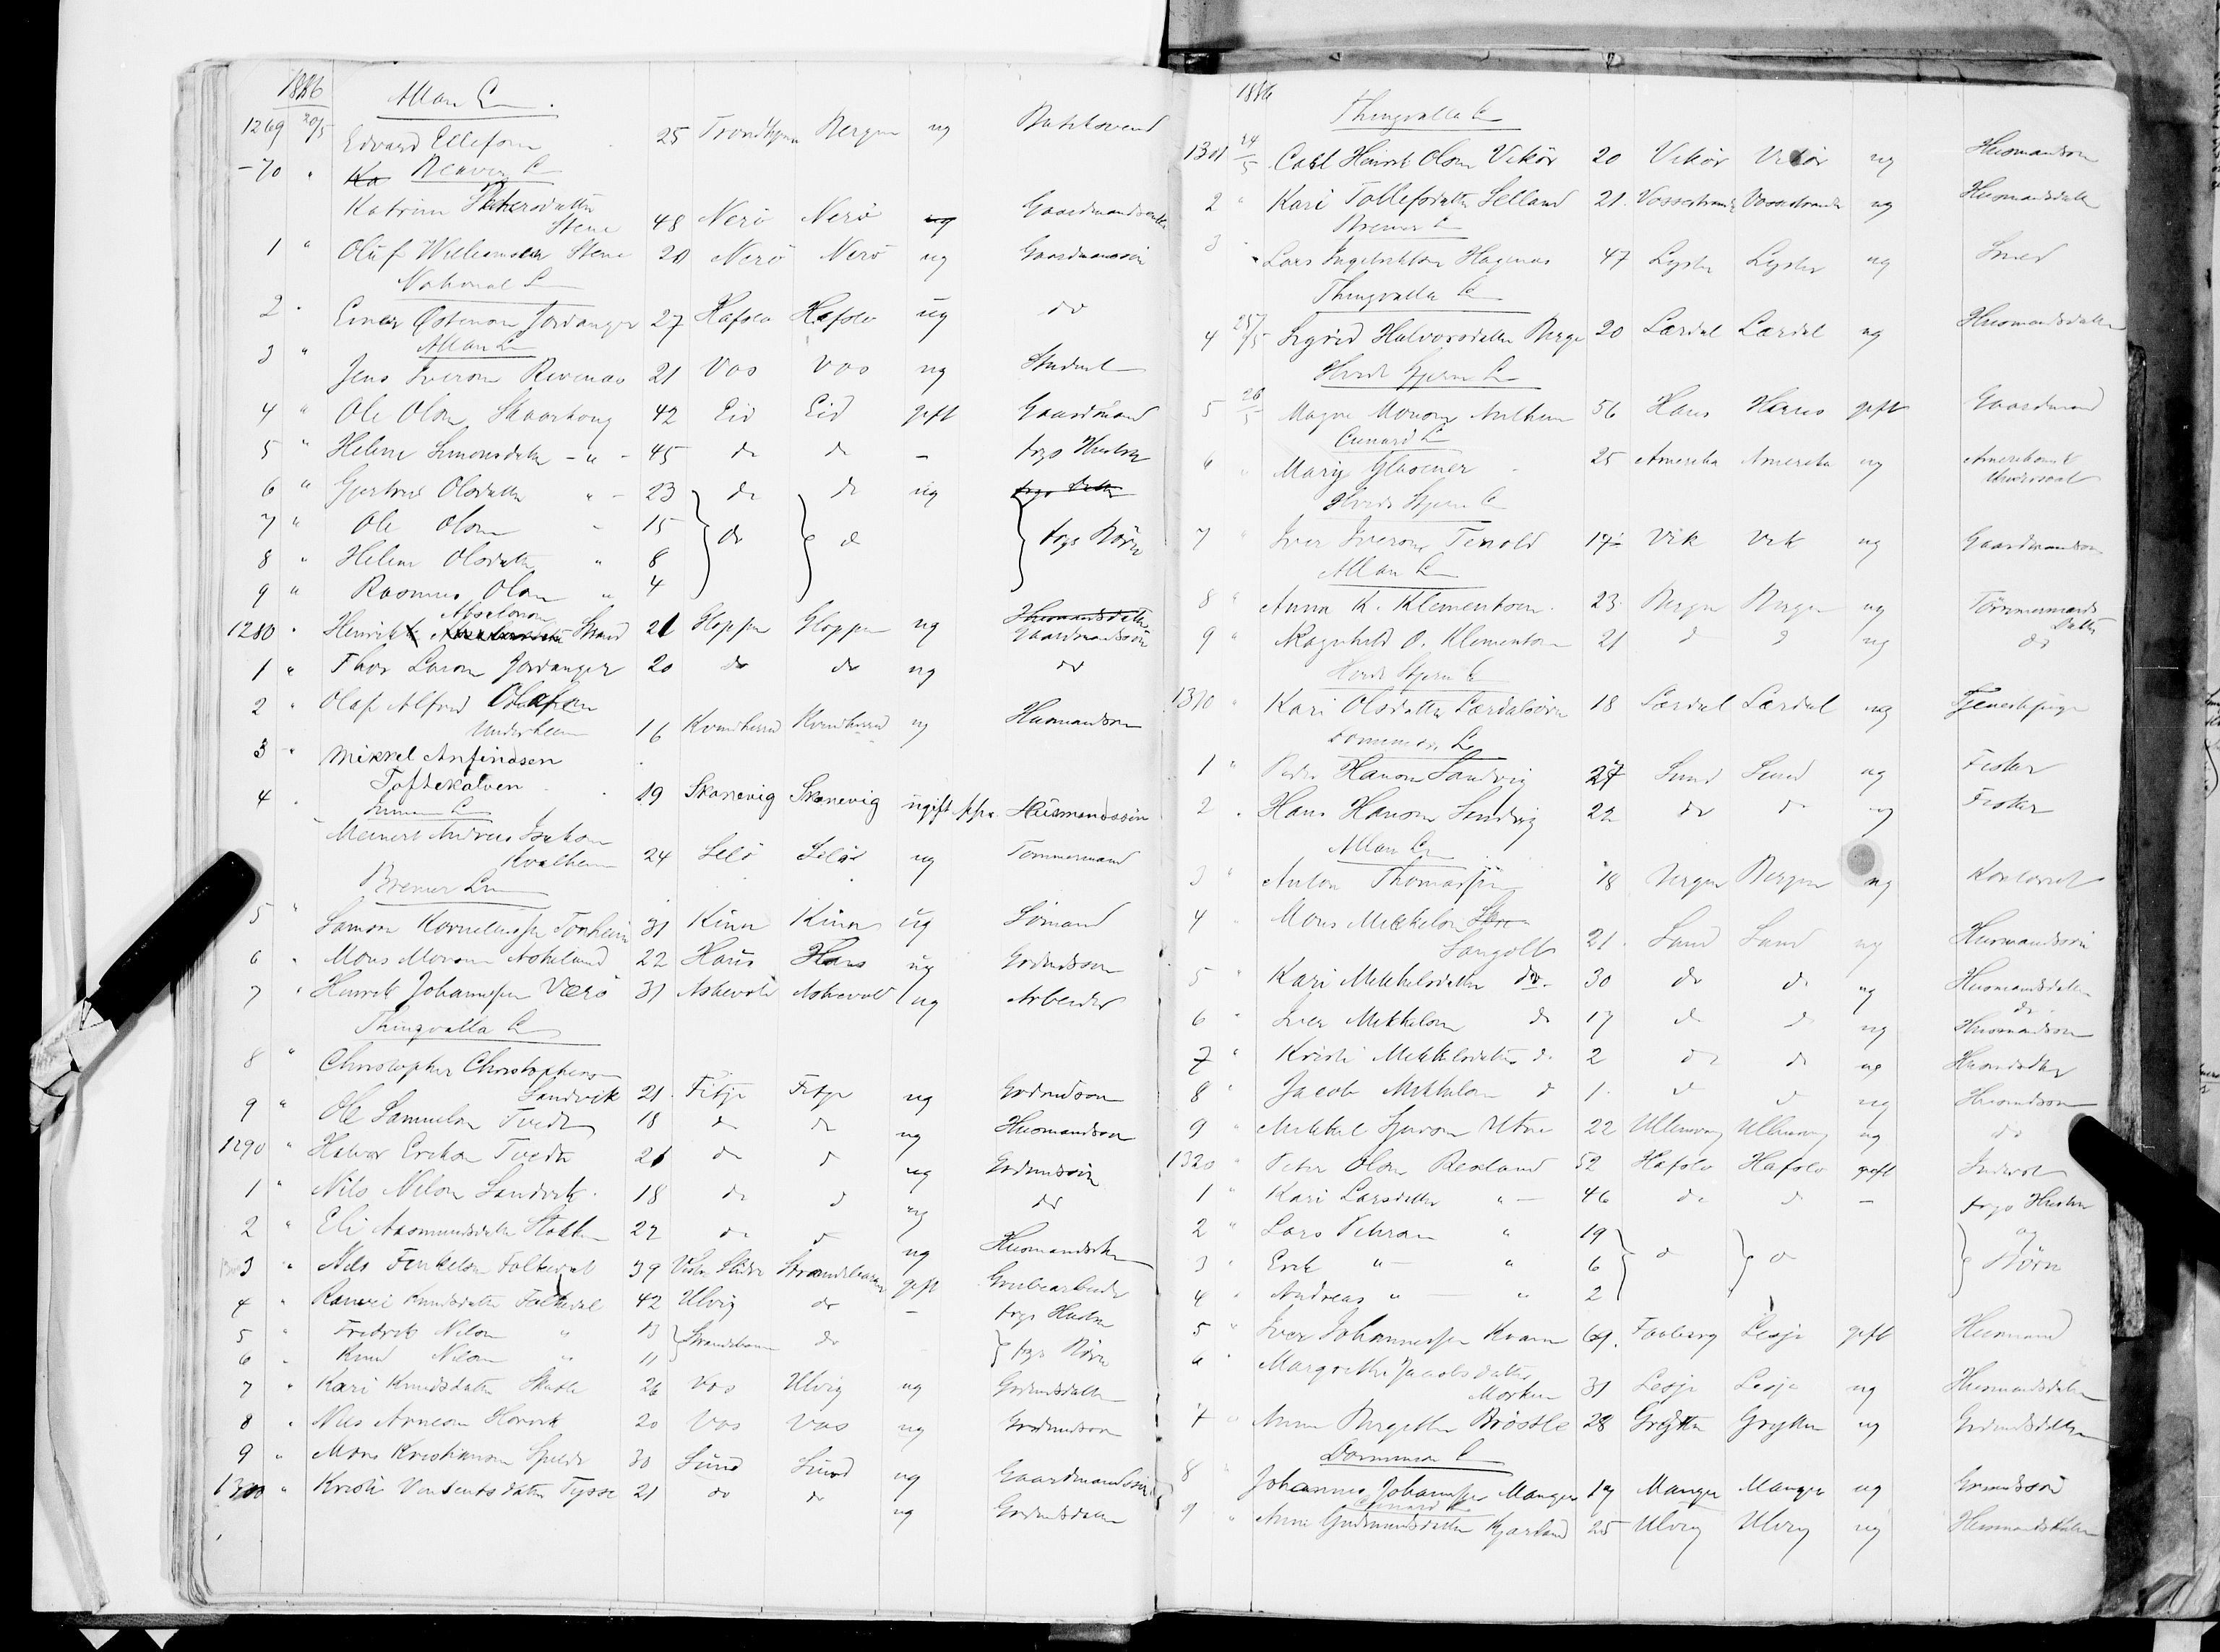 1886
Allan L
1269 20/5 Edvard Ellefsen 25 Trondhjem Bergen ug
-70 " Beaver L
Katrine
Stene 48 Nerö Nerö
1 " Oluf Williamsen Stene 20 Nerö Nerö ug Gaardmandssön
National L
2 " Einar Østensen Jordanger 27 Hafslo Hafslo ug do
Allan L
3 " Jens Iversen Revenas 21 Vos Vos ug Student
4 " Ole Olsen Skaarhaug 42 Eid Eid gift Gaardmand
5 " Helene Simonsdatter - " - 45 do do - frgs Hustru
6 " Gjertrud Olsdatter " - 23 do do ug
7 " Ole Olsen - 15 do do frgs Börn
8 " Helene Olsdatter " 8
9 " Rasmus Olsen " 4
Absalonsen
1280 " Henrik Strand 21 Gloppen Gloppen ug Gaardmandssön
1 " Thor Larsen Jordanger 20 do do ug do
2 " Olaf Alfred Olafsen
Underheim 16 Kvindherred Kvindherred ug Husmandssön
3 " Mikkel Anfindsen
Toftekalven 19 Skanevig Skanevig ugift Husmandssön
4 " Inman L
Meinert Andreas Isaksen
Kvalheim 24 Selö Selö ug Tømmermand
Bremer Lin
5 " Samson Korneliussen Torheim 31 Kinn Kinn ug Sömand
6 " Mons Monsen Askeland 22 Haus Haus ug Grdmdssøn
7 " Henrik Johannessen Værö 31 Askevold Askevold ug Arbeider
Thingvalla L
8 " Christopher Christophersen
Sandvik 21 Fitje Fitje ug Grdmdssøn
9 " Ole Samuelsen Tvedt 18 do do ug Husmandssøn
1290 " Halvor Eriksen Tvedt 21 do do ug Grdmdssön
1 " Nils Nilsen Sandvik 18 do do ug do
2 " Eli Aasmundsdatter Stokken 27 do do ug
3 " Nils Folkedal 39 Strandebarm gift Grubearbeider
4 " Ranvei Knudsdatter Folkedal 42 Ulvig do - frgs Hustru
5 " Fredrik Nilsen " 13 Strandebarm do frgs Börn
6 " Knud Nilsen " 11
7 " Kari Knudsdatter 26 Vos Ulvig ug Grdmdsdatter
8 " Nils Arnesen 20 Vos Vos ug Grdmdssøn
9 " Mons Kristiansen Spilde 30 Sund Sund ug Gaardmandssön
1300 " Kristi Tysse 21 do do ug Grdmdsdatter
1886
Thingvalla L
1301 24/5 Carl Henrik Olsen Vikör 20 Vikör Vikör ug Husmandssøn
2 " Kari Tollefsdatter Selland 21 Vossestrand Vossestrand ug Husmandsdatter
Bremer L
3 " Lars Ingebriktsen Hagenas 47 Lyster Lyster ug Smed
Thingvalla L
4 25/5 Sigrid Halvorsdatter Berge 20 Lærdal Lærdal ug Husmandsdatter
Hvide Stjerne L
5 26/5 Magne Monsen 56 Haus Haus gift Gaardmand
Cunard L
6 " Mary 25 Amerika Amerika ug Amerikansk
Undersaat
Hvide Stjerne L
7 " Iver Iversen Tenold 19 Vik Vik ug Gaardmandssøn
Allan L
8 " Anna K. Klementsen 23 Bergen Bergen ug Tömmermands
Datter
9 " Ragnhild O. Klementsen 21 do do ug do
Hvide Stjerne L
1310 " Kari Olsdatter Lærdalsören 18 Lærdal Lærdal ug Tjenestepige
Dominion L
1 " Peder Hansen Sandvig 27 Sund Sund ug Fisker
2 " Hans Hansen Sandvig 22 do do ug Fisker
Allan L
3 " Anton Thomassen 18 Bergen Bergen ug Kontorist
4 " Mons Mikkelsen
Sangolt 21 Sund Sund ug Husmandssön
5 " Kari Mikkelsdatter do 30 do do ug Husmandsdatter
6 " Iver Mikkelsen do 17 do do ug Husmandssøn
7 " Kristi Mikkelsdatter do 2 do do ug
8 " Jacob Mikkelsen do 1 do do ug
9 " Mikkel Sjursen Utne 22 Ullensvang Ullensvang ug do
1320 " Peter Olsen 52 Hafslo Hafslo gift Inderst
1 " Kari Larsdatter " - 46 do do - frgs Hustru
2 " Lars Petersen " 19 do do og
3 " Erik " " 6 Börn
4 " Andreas " " 2
5 " Iver Johannessen Kvam 69 Faaberg Lesje gift Husmand
6 " Margrethe Jacobsdatter
Morken 31 Lesje Lesje ug Husmandsdatter
7 " Anne Bergitte Brøste 28 Grytten Grytten ug Grdmdsdatter
Dominion L
8 " Johannes Johannessen Manger 19 Manger Manger ug Grdmdssøn
Cunard L
9 " Anna Gudmundsdatter Kjærland 25 Ulvig Ulvig ug Husmandsdatter